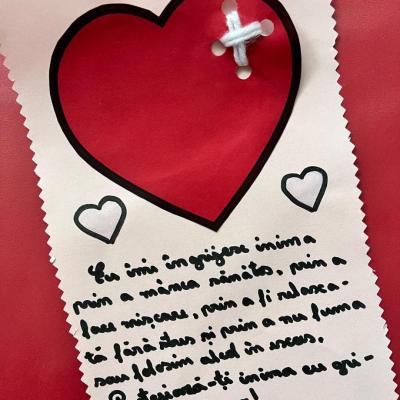 Eu îmi îngrijesc inima
prin a mânca sănătos, prin a
face mișcare, prin a fi relaxa-
tă fără stres și prin a nu fuma
sau folosim alcol în exces.
inima cu gri-